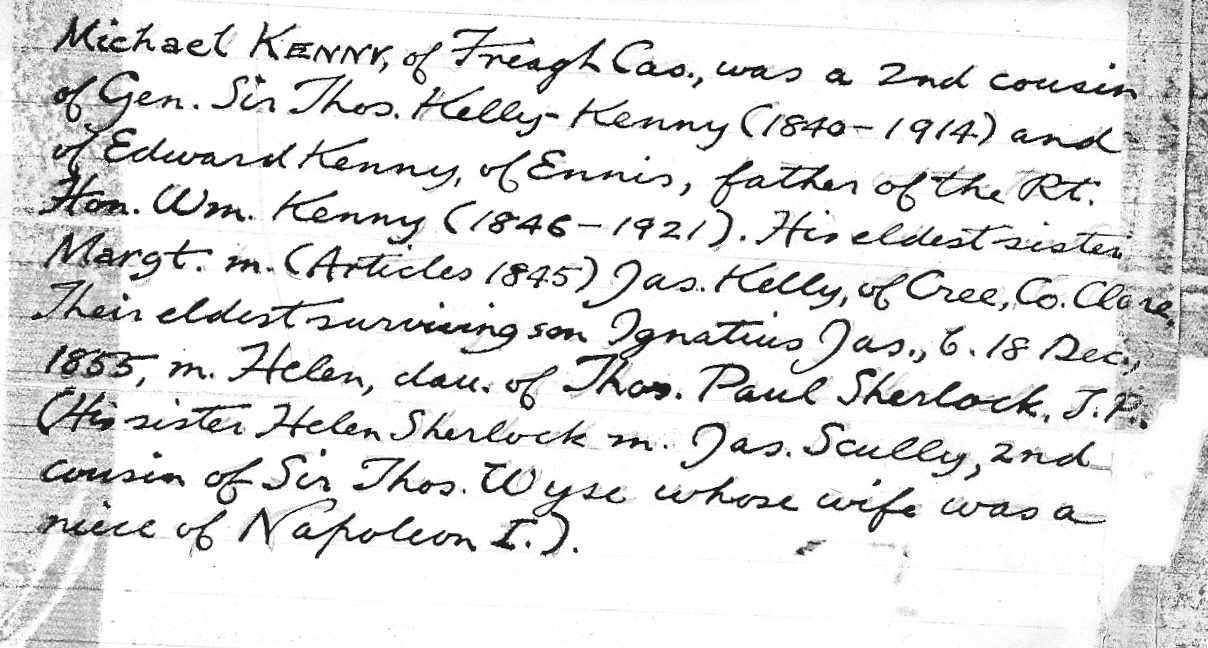 Michael KENNY, of Freagh Cas., was a 2nd cousin
of Gen. Sir Thos. Kelly-Kenny (1840-1914) and
of Edward Kenny, of Ennis, father of the Rt.
Hon. Wm. Kenny (1846-1921). His eldest sister
Margt. m. (Articles 1845) Jas. Kelly, of Cree, Co. Clare.
Their eldest surviving son Ignatius Jas., b. 18 Dec.,
1855, m. Helen, dau. of Thos. Paul Sherlock, J.P.
(His sister Helen Sherlock m. Jas. Scully, 2nd
cousin of Sir Thos. Wyse whose wife was a
niece of Napoleon I.).